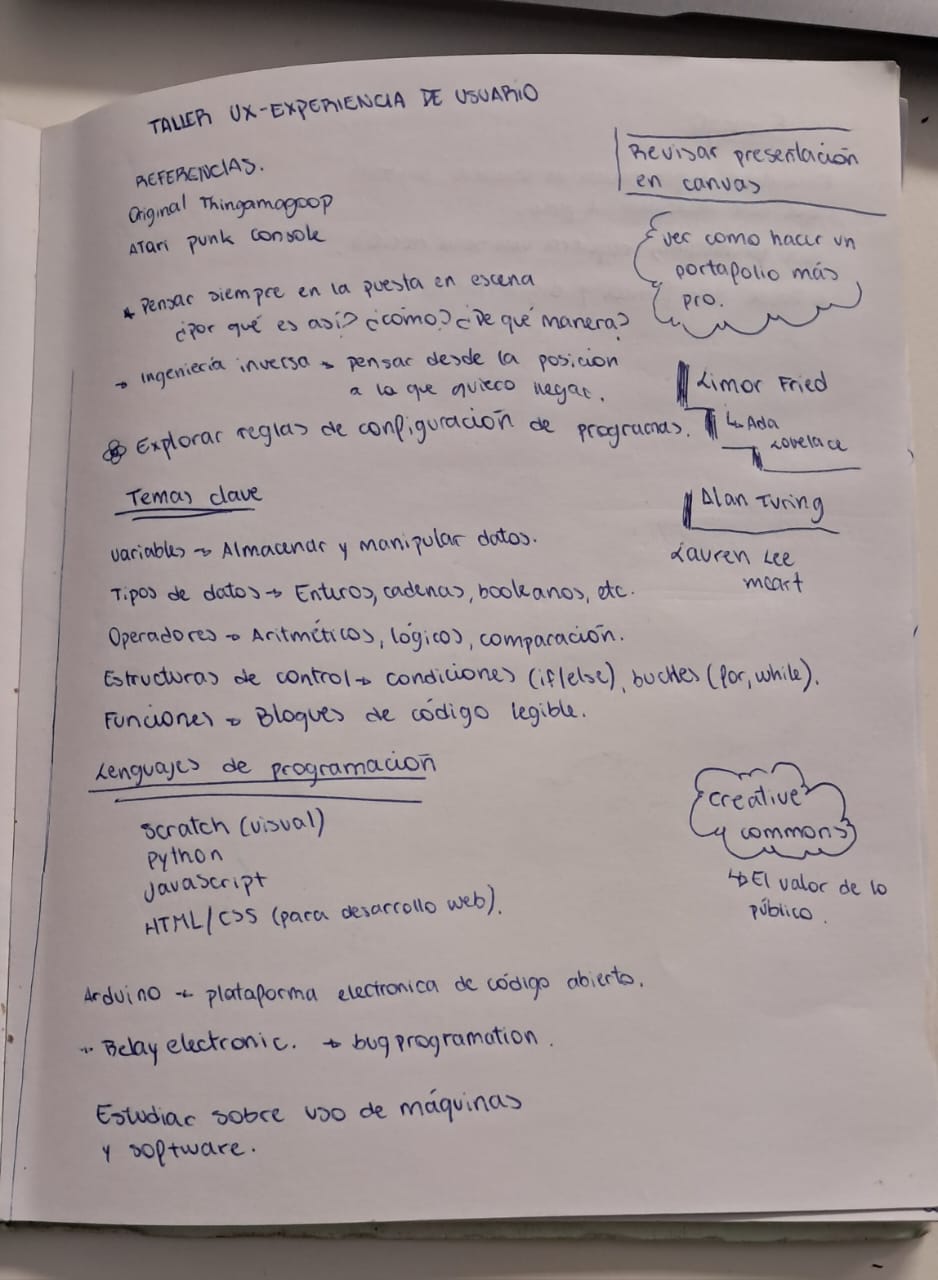 TALLER UX-EXPERIENCIA DE USUARIO
Revisar presentación
en canvas
REFERENCIAS.
Original Thingamagoop
Atari punk console
ver como hacer un
portafolio más
pro.
* Pensar siempre en la puesta en escena
¿Por qué es así? ¿cómo? ¿De qué manera?
→ Ingeniería inversa → pensar desde la posicion
a la que quiero llegar.
Explorar reglas de configuración de programas.
Limor Fried
↳ Ada
Lovelace
Alan Turing
Lauren Lee
mcart
Temas clave
Variables → Almacenar y manipular datos.
Tipos de datos → Enteros, cadenas, booleanos, etc.
Operadores → Aritméticos, lógicos, comparación.
Estructuras de control → condiciones (if/else), bucles (for, while).
Funciones → Bloques de código legible.
Lenguajes de programación
Scratch (visual)
Python
Javascript
HTML/CSS (para desarrollo web).
creative
commons
↳ El valor de lo
público.
Arduino → plataforma electronica de código abierto.
Belay electronic. → bug programation.
Estudiar sobre uso de máquinas
y software.